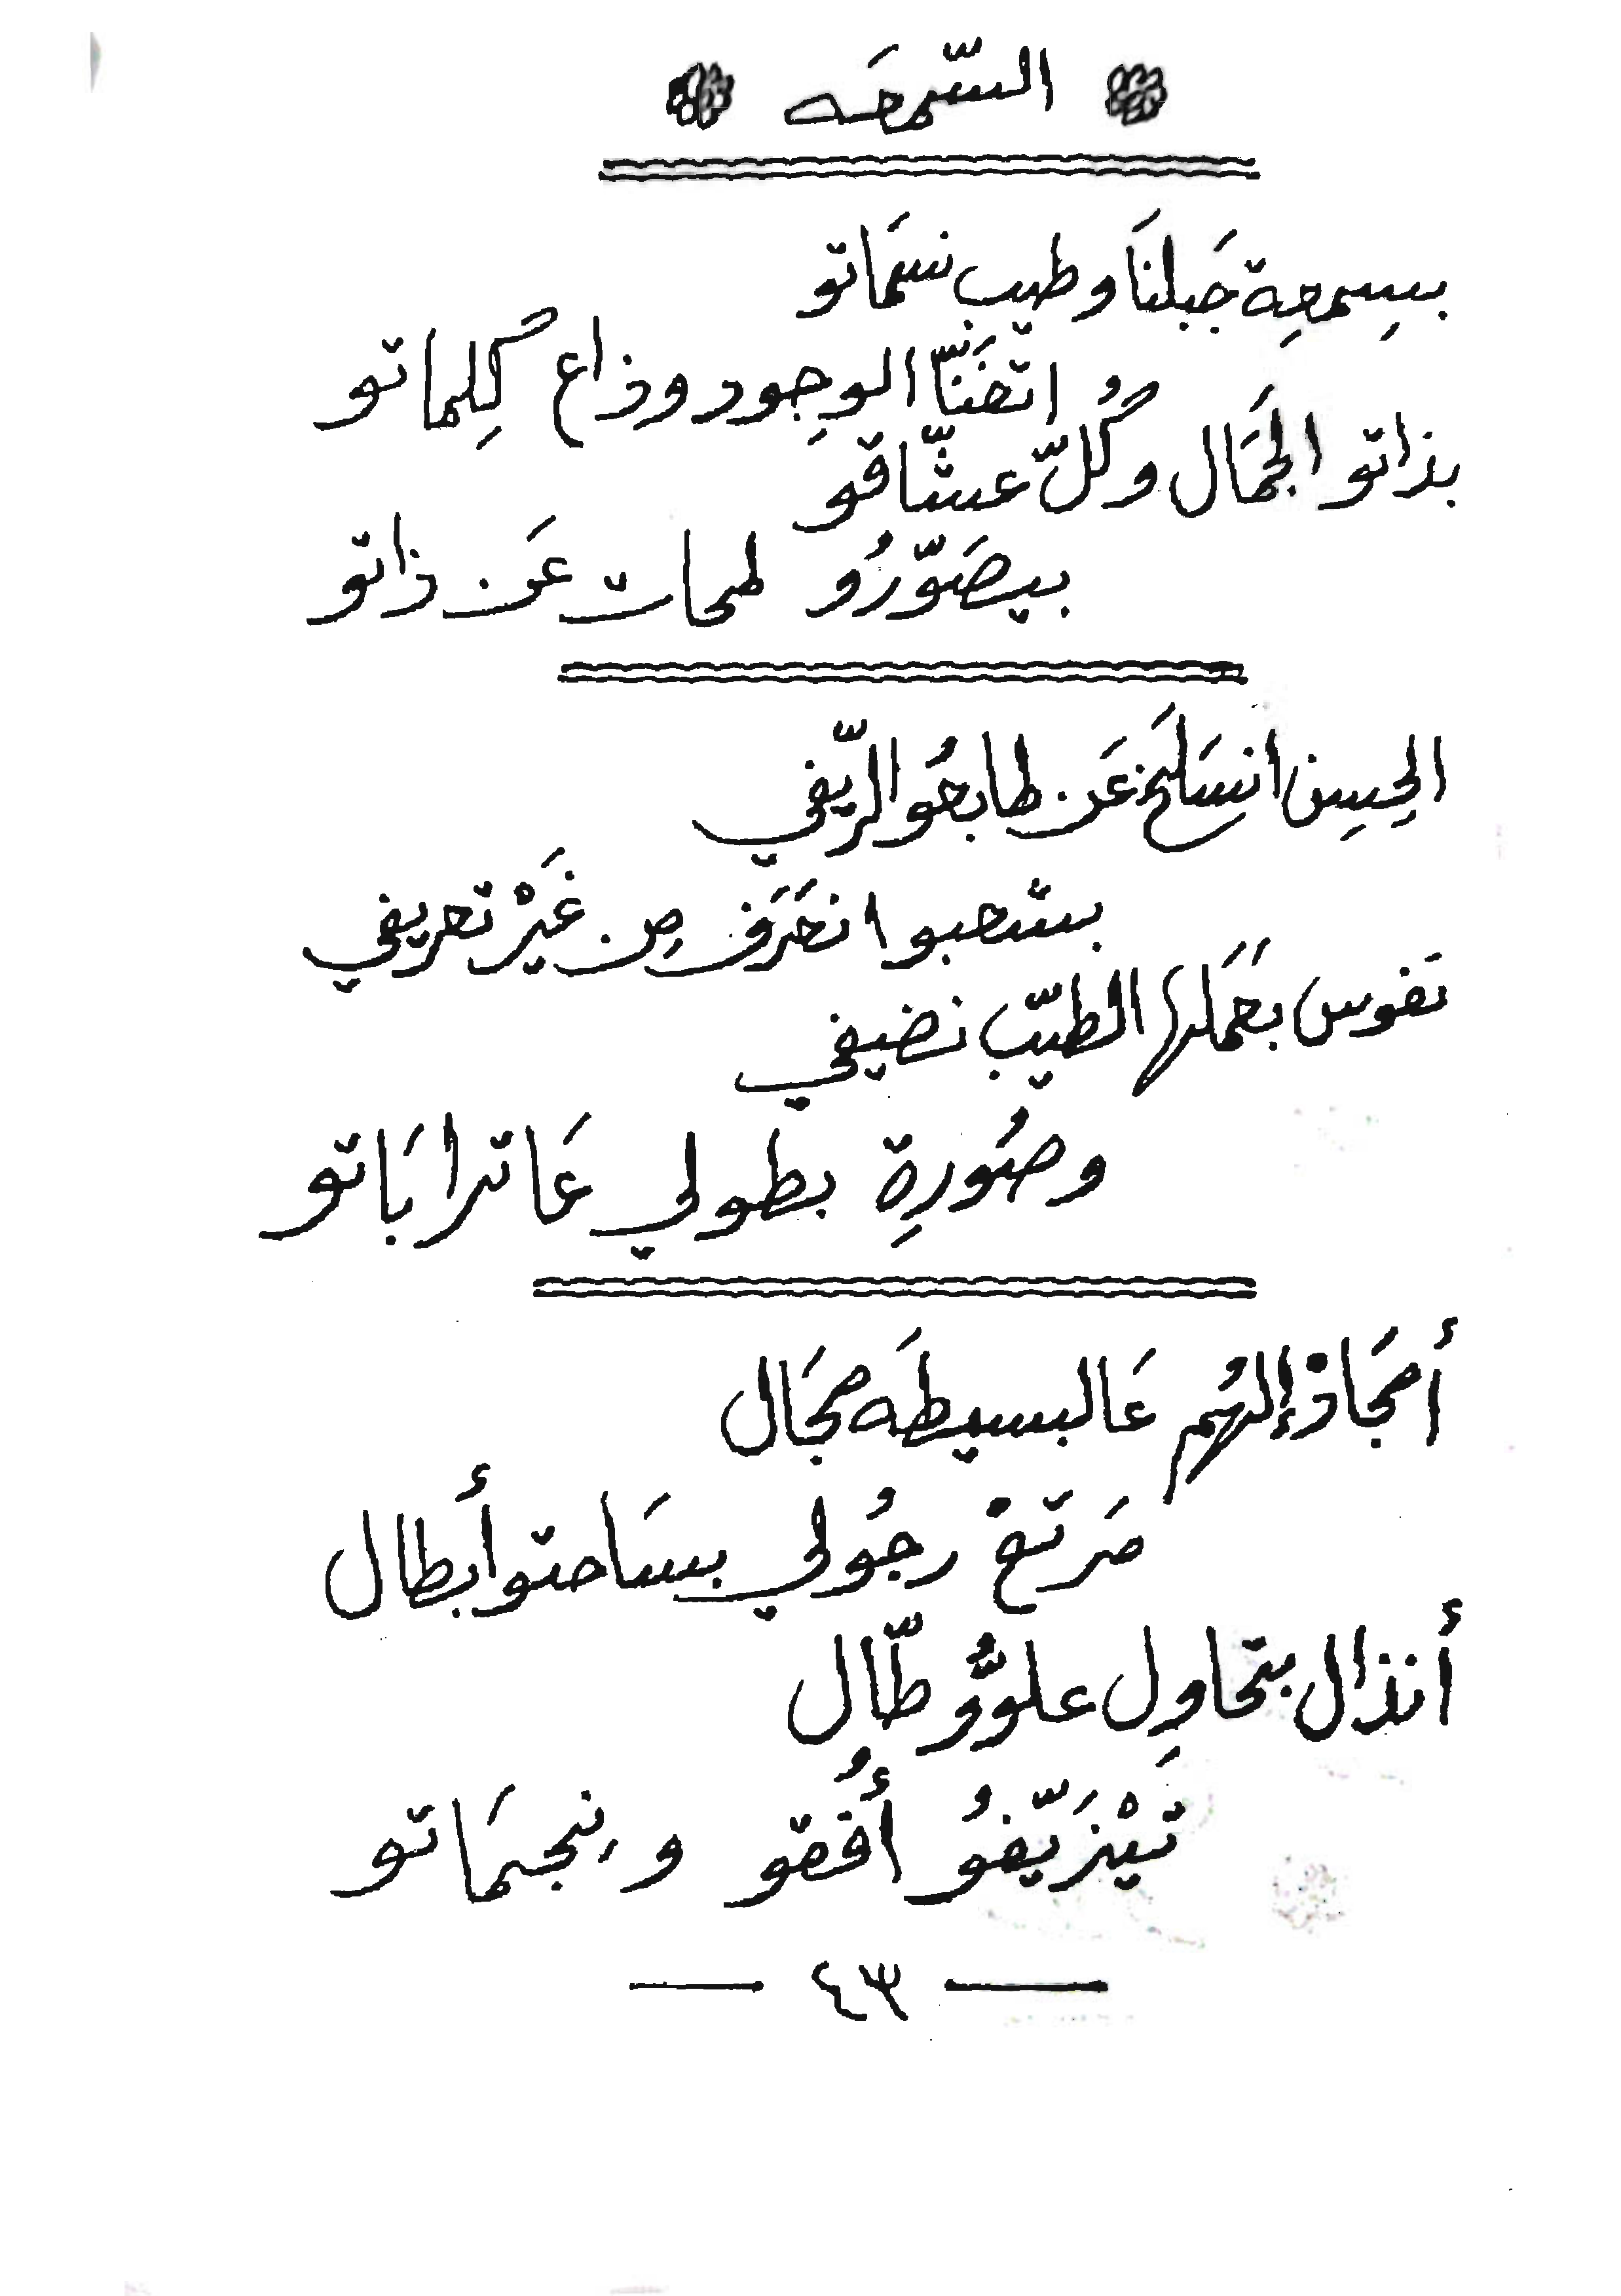 السّمعَه
بسِمعِة جَبلنَا وطيب نسمَاتو
اتغَنّا الوجود وذاع كِلماتو
بذاتو الجمَال وكُلّ عشّاقو
بيصَوّرُو لمحات عَن ذاتو
الحِسِن انسَلَخ عَن طابعُو الرّيفي
بشعبو انحَرَف مِن غَيْر تعريفي
نفوس بعَملها الطيّب نضيفي
وصُورِة بطولي عَا ترابَاتو
أمجَادْ إلهُم عَالبسيطَه مجَال
مَرتعْ رجُولي بسَاحتو أبطال
أنذال بتحاوِل علوُّو طّال
تَيْزَيّفوُ أُفقو ونِجمَاتو
٤٣